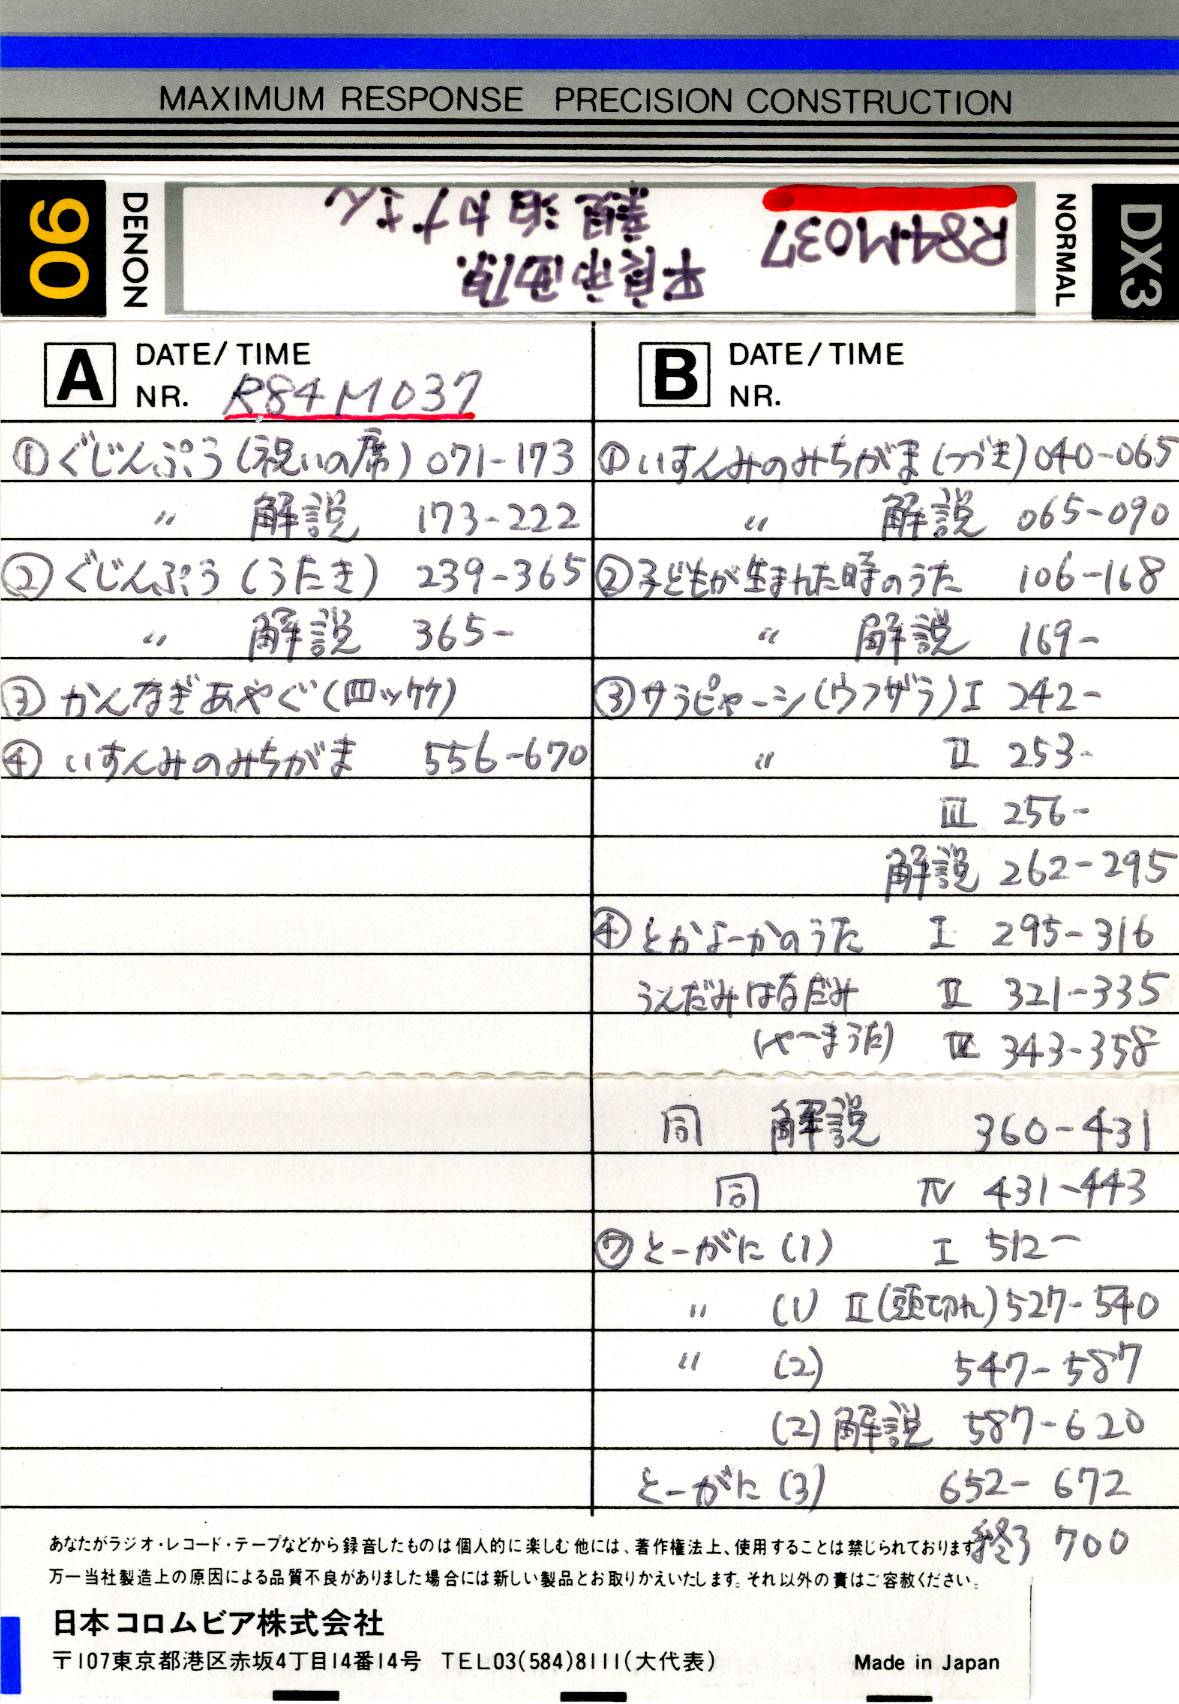 MAXIMUM RESPONSE PRECISION CONSTRUCTION
90
DENON
R84M037
平良市西原
親泊カナさん
NORMAL
DX3
A DATE/TIME
NR. R84M037
①ぐじんぷう(祝いの席) 071-173
〃 解説 173-222
②ぐじんぷう(うたき) 239-365
〃 解説 365-
③かんなぎあやぐ(四ッ竹)
④いすんみのみちがま 556-670
B DATE/TIME
NR.
①いすんみのみちがま(つづき)040-065
〃 解説 065-090
②子どもが生まれた時のうた 106-168
〃 解説 169-
③サラピャーシ(ウフザラ)I 242-
〃 II 253-
III 256-
解説 262-295
④とかよーかのうた I 295-316
うえだみはなだみ II 321-335
(やーまうた) III 343-358
同 解説 360-431
同 IV 431-443
⑦とーがに(1) I 512-
〃 (1) II(頭切れ)527-540
〃 (2) 547-587
(2)解説 587-620
とーがに(3) 652-672
終了 700
あなたがラジオ・レコード・テープなどから録音したものは個人的に楽しむ他には、著作権法上、使用することは禁じられております。
万一当社製造上の原因による品質不良がありました場合には新しい製品とお取りかえいたします。それ以外の責はご容赦ください。
日本コロムビア株式会社
〒107東京都港区赤坂4丁目14番14号 TEL03(584)8111(大代表)
Made in Japan